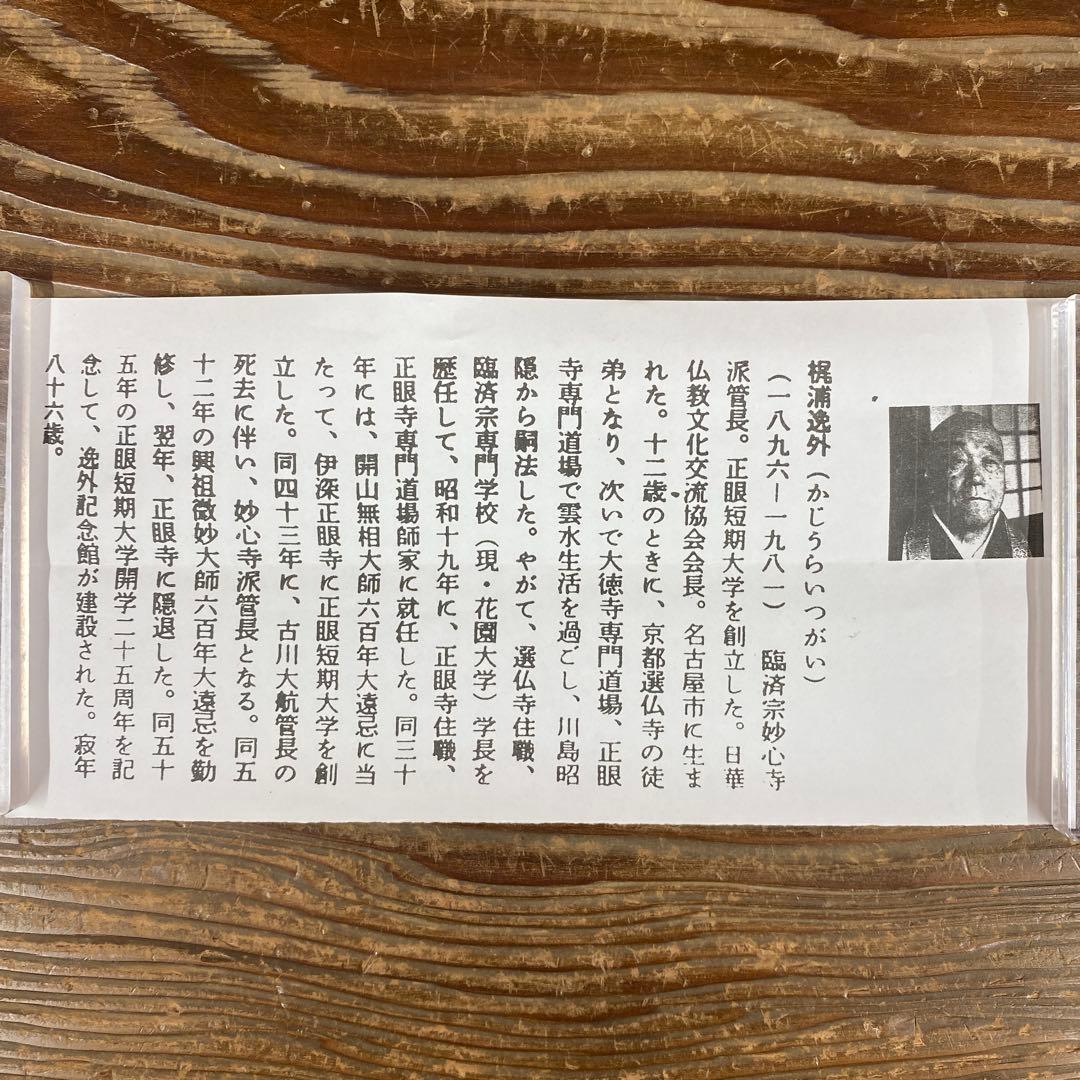 梶浦逸外（かじうらいつがい）
（一八九六―一九八一）　臨済宗妙心寺
派管長。正眼短期大学を創立した。日華
仏教文化交流協会会長。名古屋市に生ま
れた。十二歳のときに、京都選仏寺の徒
弟となり、次いで大徳寺専門道場、正眼
寺専門道場で雲水生活を過ごし、川島昭
隠から嗣法した。やがて、選仏寺住職、
臨済宗専門学校（現・花園大学）学長を
歴任して、昭和十九年に、正眼寺住職、
正眼寺専門道場師家に就任した。同三十
年には、開山無相大師六百年大遠忌に当
たって、伊深正眼寺に正眼短期大学を創
立した。同四十三年に、古川大航管長の
死去に伴い、妙心寺派管長となる。同五
十二年の興祖微妙大師六百年大遠忌を勤
修し、翌年、正眼寺に隠退した。同五十
五年の正眼短期大学開学二十五周年を記
念して、逸外記念館が建設された。寂年
八十六歳。